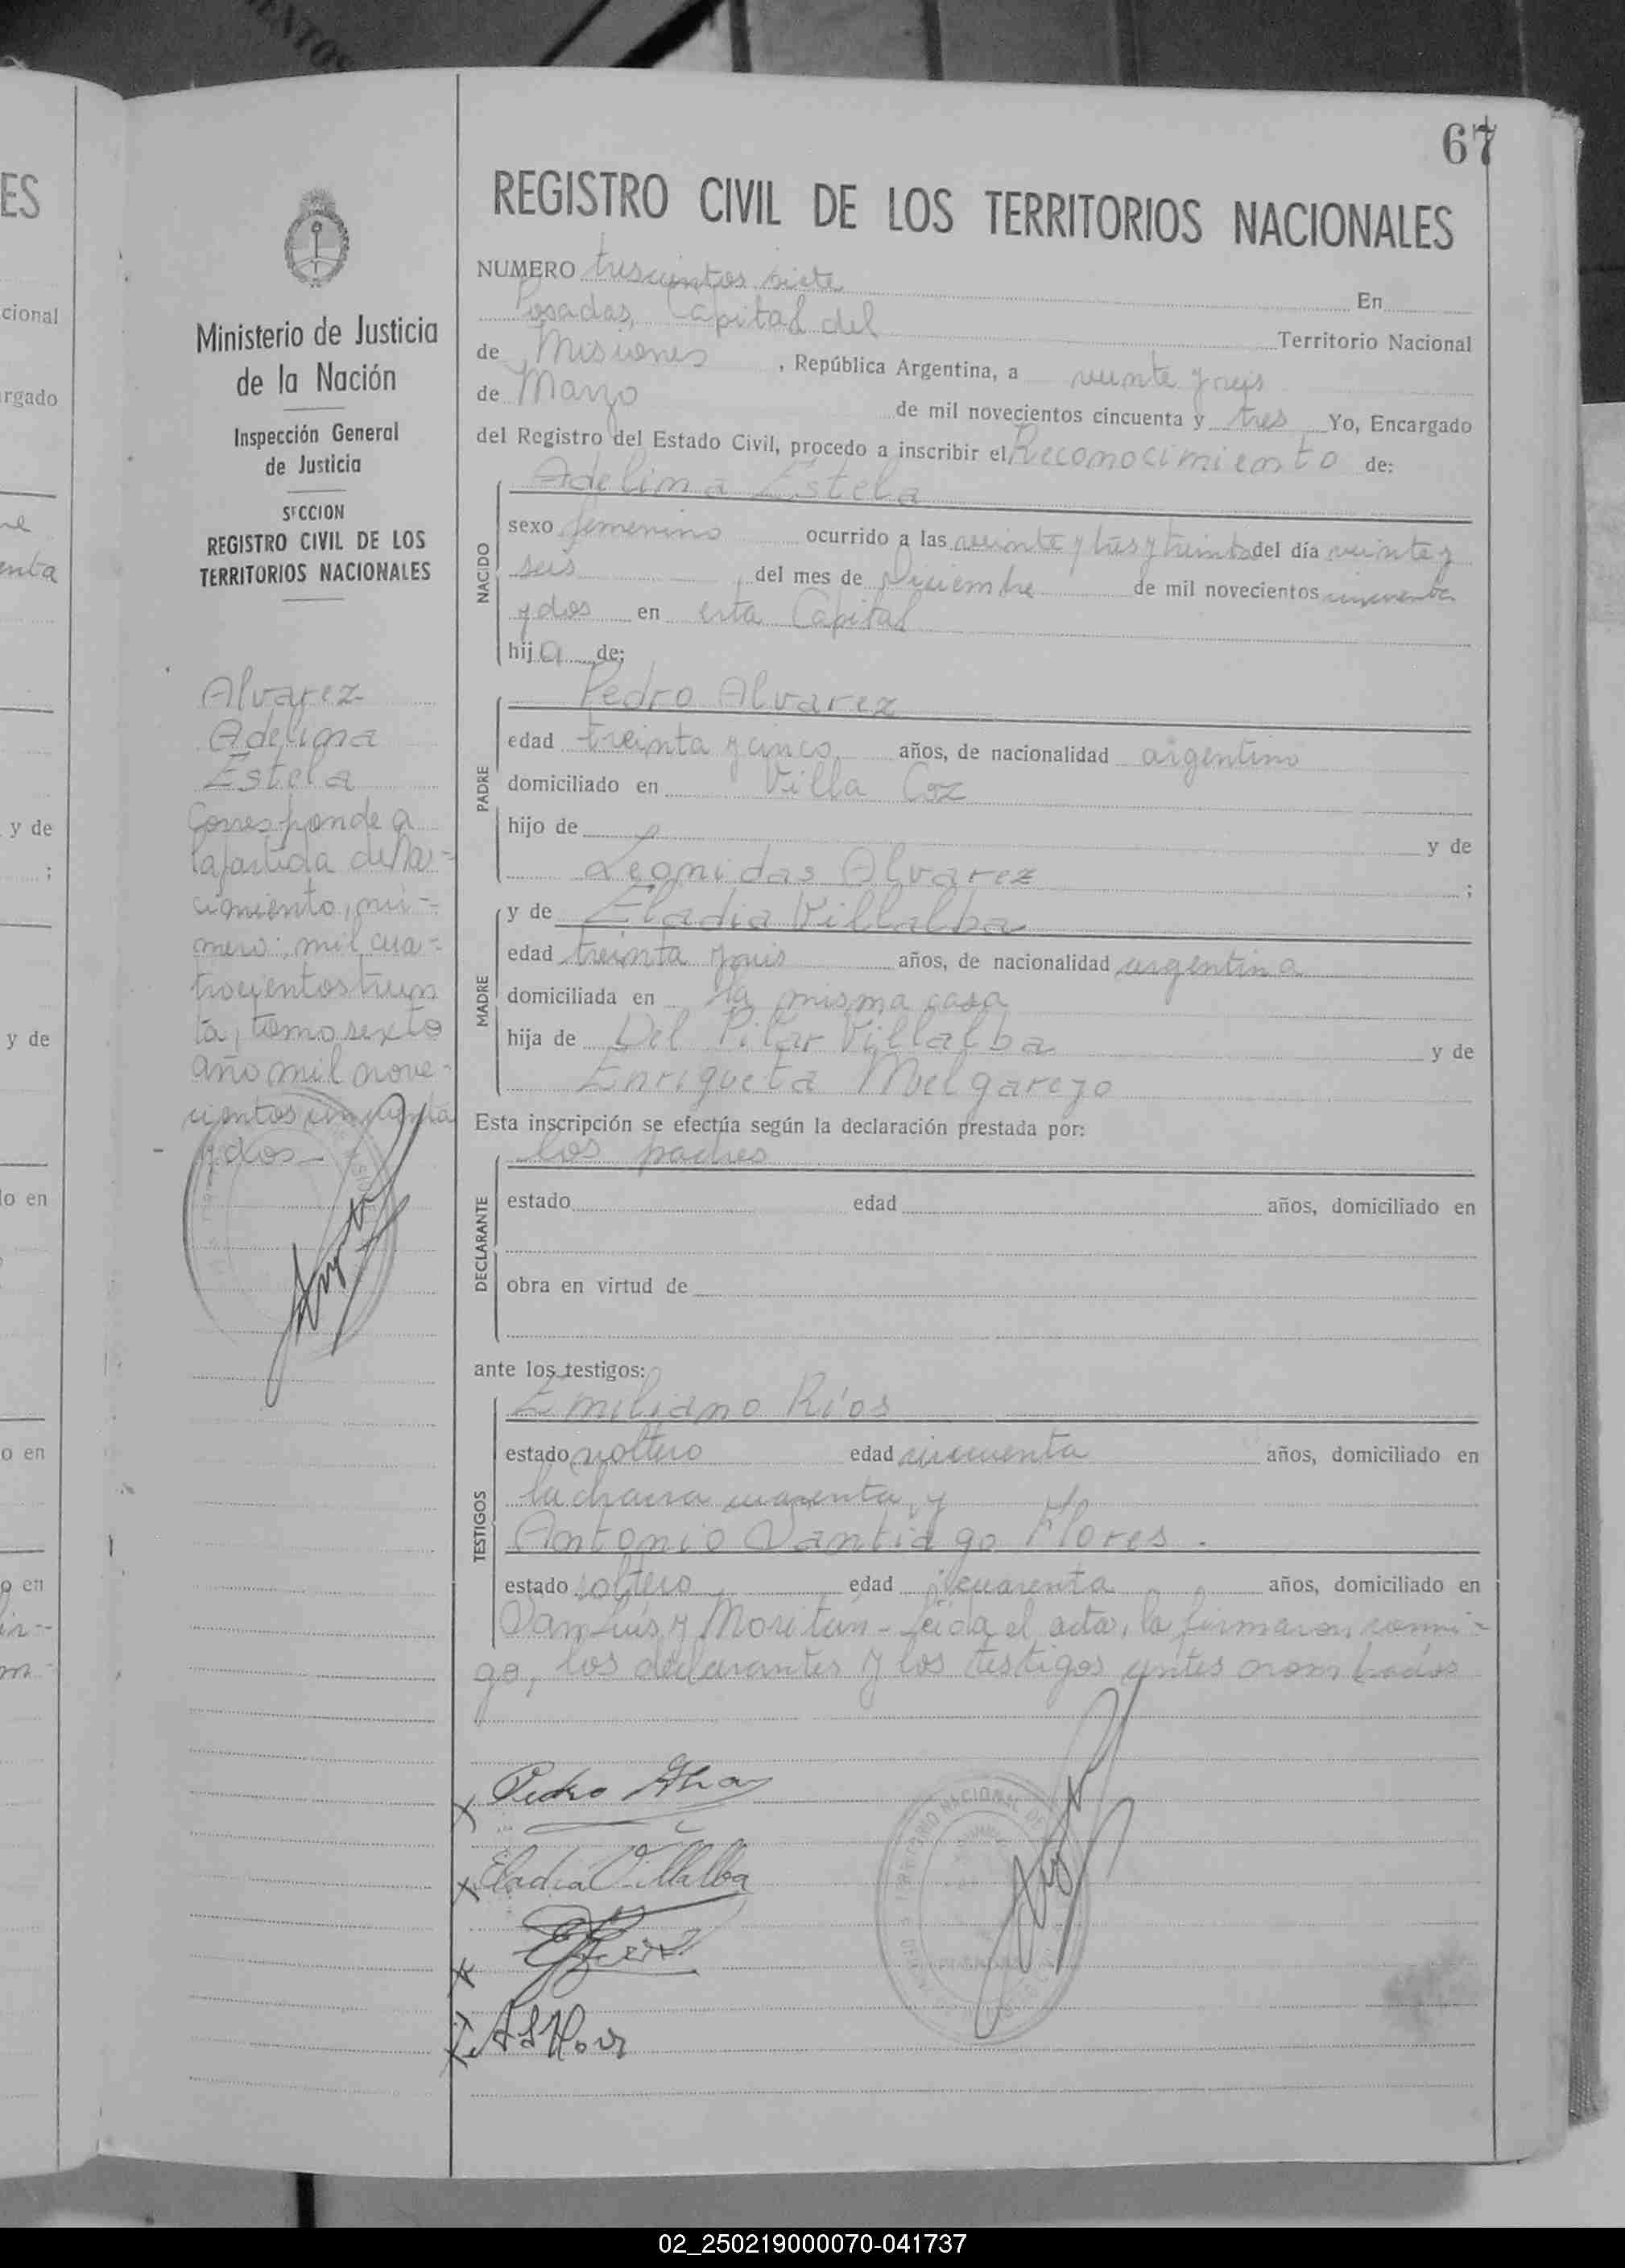 67
REGISTRO CIVIL DE LOS TERRITORIOS NACIONALES
NUMERO trescientos siete En
Posadas, Capital del Territorio Nacional
de Misiones, República Argentina, a veinte y seis
de Marzo de mil novecientos cincuenta y tres Yo, Encargado
del Registro del Estado Civil, procedo a inscribir el Reconocimiento de:
Adelina Estela
NACIDO
sexo femenino ocurrido a las veinte y tres y treinta del día veinte y
seis del mes de Diciembre de mil novecientos cincuenta
y dos en esta Capital
hija de:
Pedro Alvarez
PADRE
edad treinta y cinco años, de nacionalidad argentino
domiciliado en Villa Coz
hijo de y de
Leonidas Alvarez ;
y de Eladia Villalba
MADRE
edad treinta y seis años, de nacionalidad argentina
domiciliada en la misma casa
hija de Del Pilar Villalba y de
Enriqueta Melgarejo
Esta inscripción se efectúa según la declaración prestada por:
los padres
DECLARANTE
estado edad años, domiciliado en
obra en virtud de
ante los testigos:
Emiliano Ríos
TESTIGOS
estado soltero edad cincuenta años, domiciliado en
la chacra cuarenta, y
Antonio Santiago Flores.
estado soltero edad cuarenta años, domiciliado en
San Luis y Moritán - Leida el acta, la firmaron, conmi-
go, los declarantes y los testigos antes nombrados
Pedro
Eladia Villalba
Ministerio de Justicia
de la Nación
Inspección General
de Justicia
SECCION
REGISTRO CIVIL DE LOS
TERRITORIOS NACIONALES
Alvarez
Adelina
Estela
Corresponde a
la partida de Na-
cimiento, nú-
mero: mil cua-
trocientos trein
ta, tomo sexto
año mil nove-
cientos cincuenta
y dos -
ES
cional
argado
enta
y de
;
y de
lo en
o en
o en
02_250219000070-041737